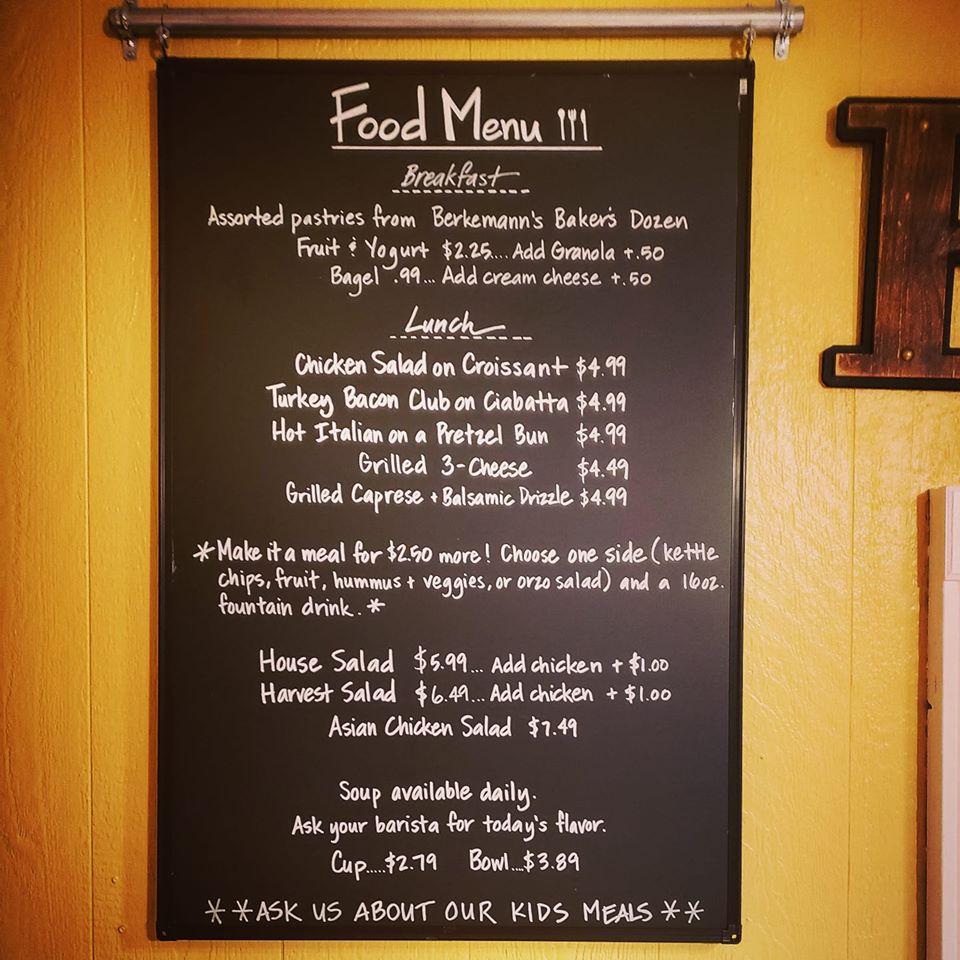 Food Menu
Breakfast
Assorted pastries from Berkemann's Baker's Dozen
Fruit & Yogurt $2.25... Add Granola +.50
Bagel .99... Add cream cheese +.50
Lunch
Chicken Salad on Croissant $4.99
Turkey Bacon Club on Ciabatta $4.99
Hot Italian on a Pretzel Bun $4.99
Grilled 3-Cheese $4.49
Grilled Caprese + Balsamic Drizzle $4.99
*Make it a meal for $2.50 more! Choose one side (kettle
chips, fruit, hummus + veggies, or orzo salad) and a 16oz.
fountain drink.*
House Salad $5.99... Add chicken + $1.00
Harvest Salad $6.49... Add chicken + $1.00
Asian Chicken Salad $7.49
Soup available daily.
Ask your barista for today's flavor.
Cup.....$2.79 Bowl....$3.89
**ASK US ABOUT OUR KIDS MEALS**